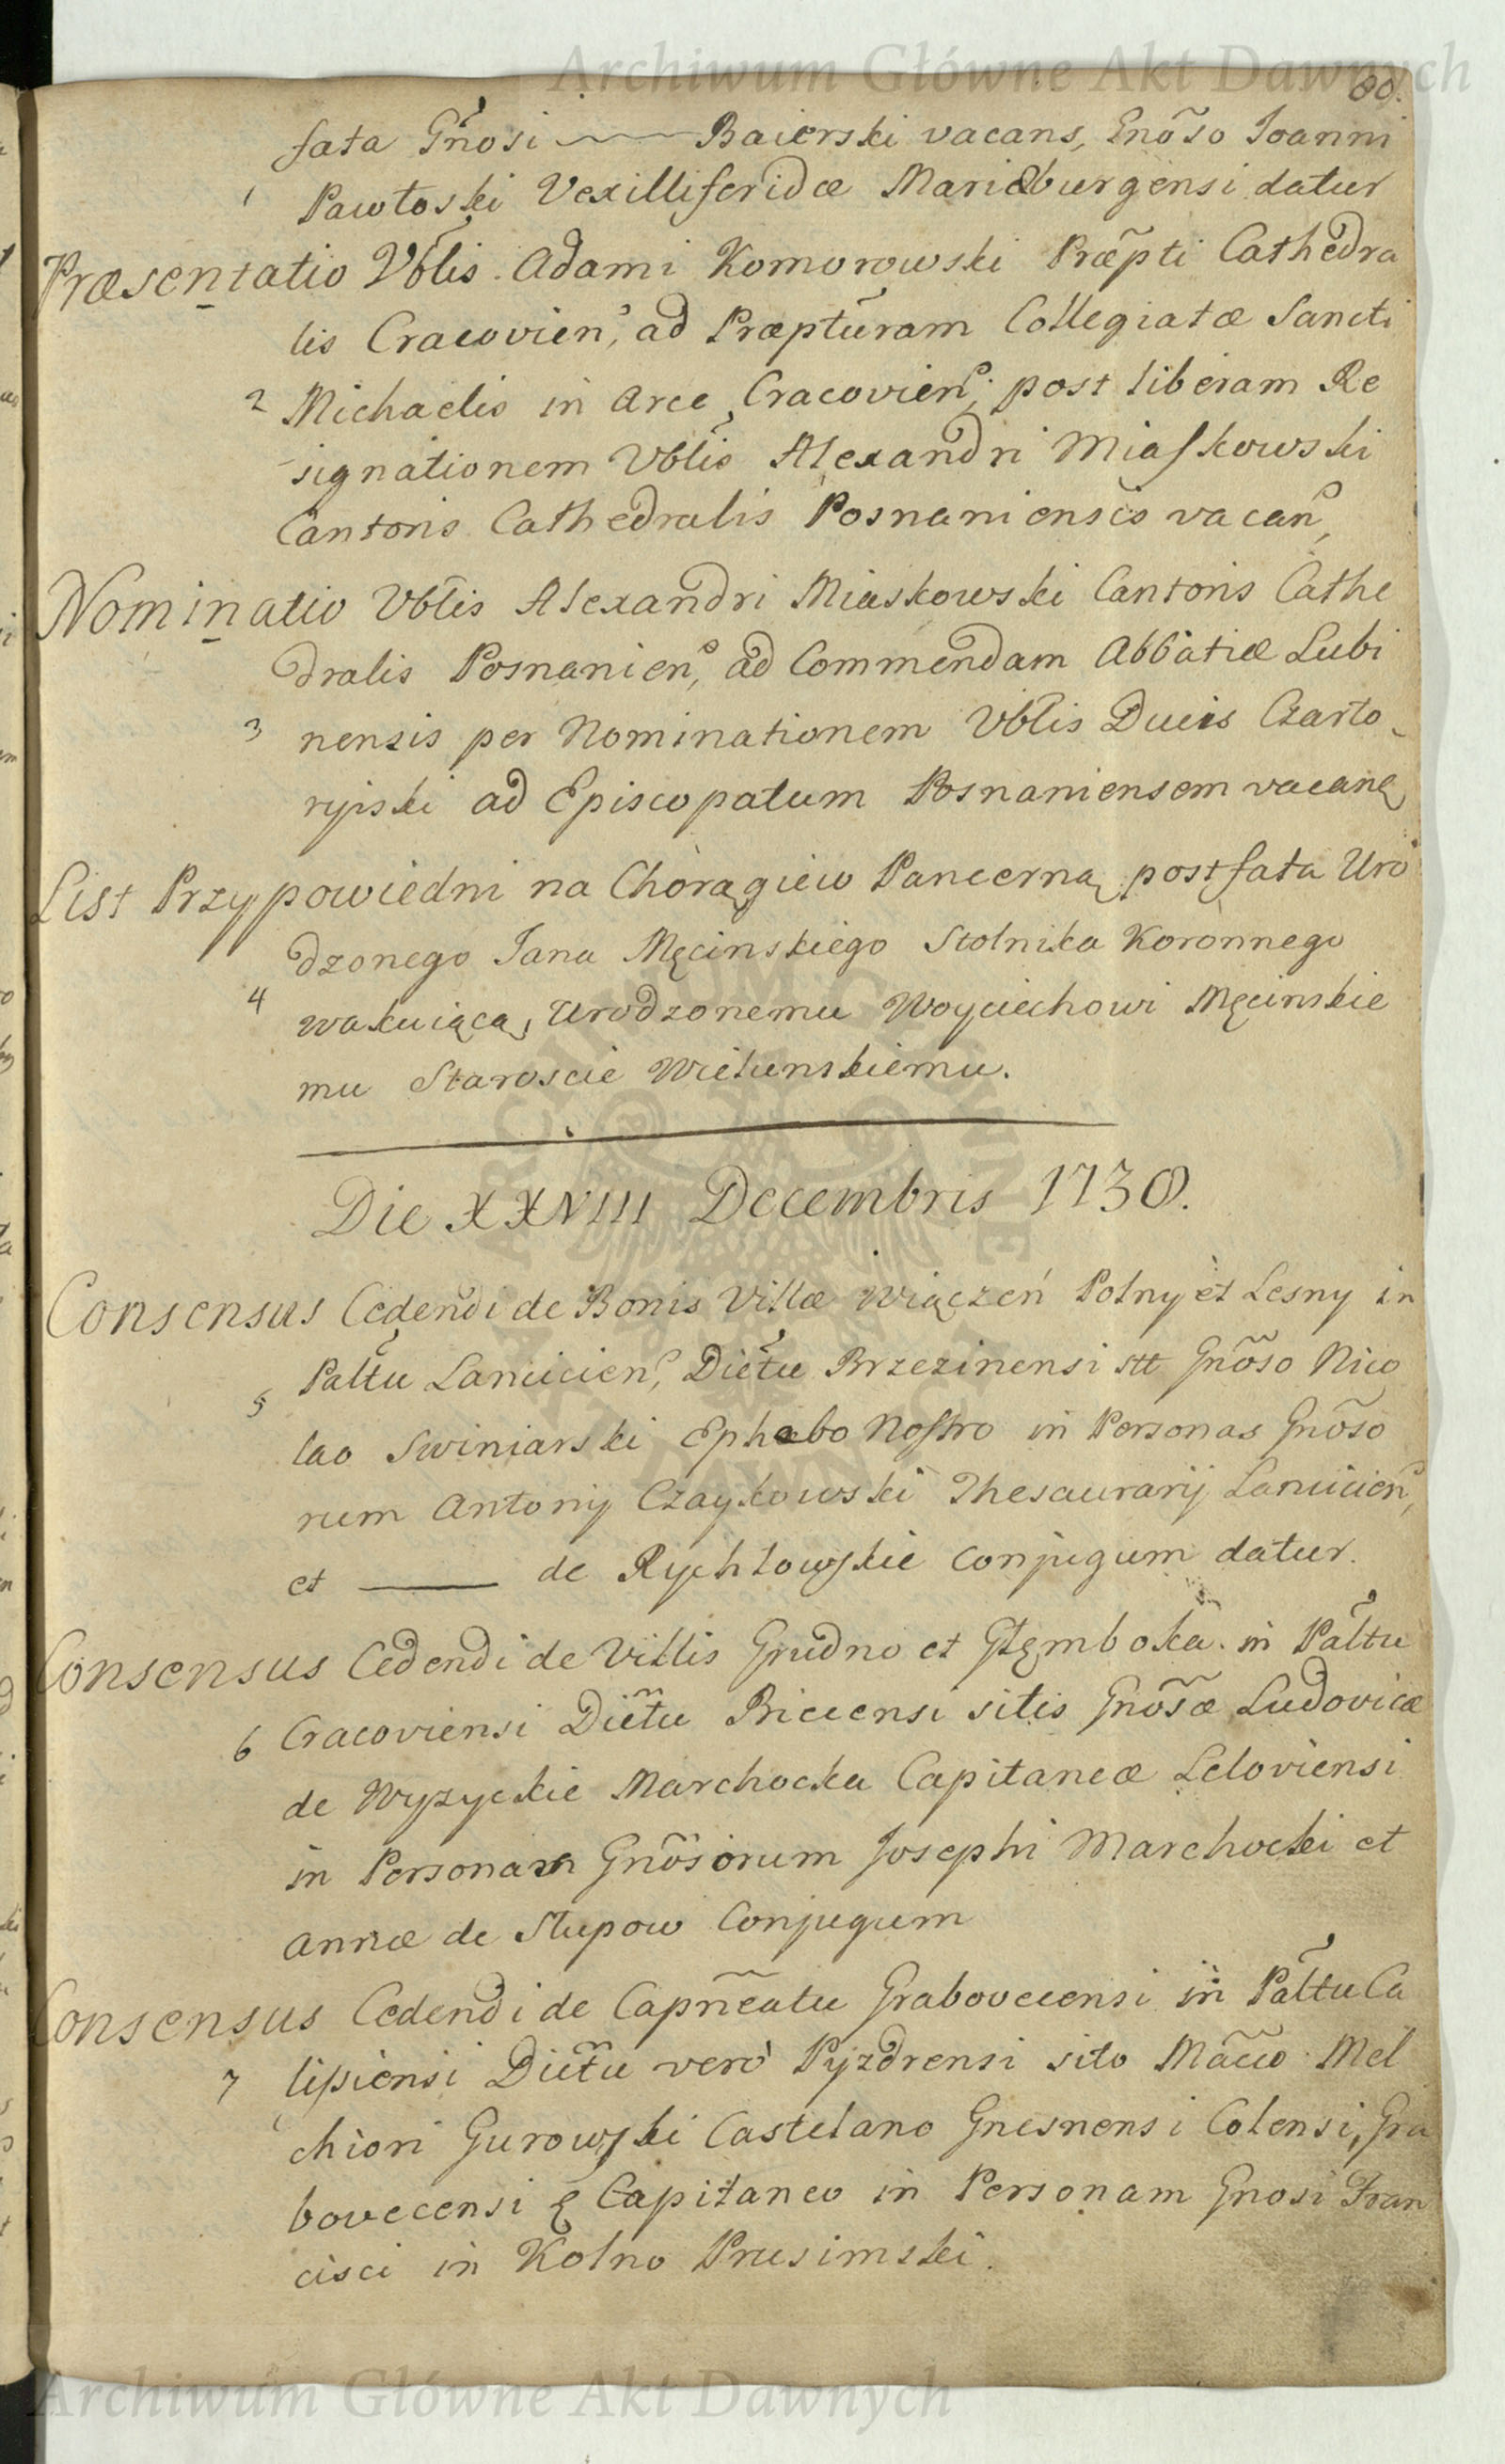 Archiwum Główne Akt Dawnych
80.
fata Gñosi ——— Baierski vacans, Gnõso Joanni
1 Pawłoski Vexilliferidæ Mariæburgensi datur
Præsentatio Vblis. Adami Komorowski Præpti Cathedra
lis Cracovien, ad Præpturam Collegiatæ Sancti
2 Michaelis in Arce Cracovien, post liberam Re
signationem Vblis Alexandri Miaskowski
Cantoris Cathedralis Posnaniensis vacan,
Nominatio Vblis Alexandri Miaskowski Cantoris Cathe
dralis Posnanien, ad Commendam Abbatiæ Lubi
3 nensis per Nominationem Vblis Ducis Czarto
ryiski ad Episcopatum Posnaniensem vacan,
List Przypowiedni na Chorągiew Pancerną post fata Uro
dzonego Jana Męcinskiego Stolnika Koronnego
4 wakuiącą, Urodzonemu Woyciechowi Męcinskie
mu Staroscie Wielunskiemu.
Die XXVIII Decembris 1730.
Consensus Cedendi de Bonis Villæ Wiączeń Polny et Lesny in
Palttu Lancicien, Dictu Brzezinensi stt Gnõso Nico
5 lao Swiniarski Ephebo Nostro in Personas Gnõso
rum Antonij Czaykowski Thesaurarij Lancicien,
et ——— de Rychłowskie Conjugum datur.
Consensus Cedendi de Villis Grudno et Głęmboka in Palttu
6 Cracoviensi Dictu Biecensi sitis Gnõsæ Ludovicæ
de Wyzyckie Marchocka Capitaneæ Leloviensi
in Personam Gnõsorum Josephi Marchocki et
Annæ de Słupow Conjugum
Consensus Cedendi de Capñeatu Grabovecensi in Palttu Ca
7 lisiensi Dictu vero Pyzdrensi sito Mãco Mel
chiori Gurowski Castelano Gnesnensi Colensi, Gra
bovecensi & Capitaneo in Personam Gnosi Fran
cisci in Kolno Prusimski.
Archiwum Główne Akt Dawnych